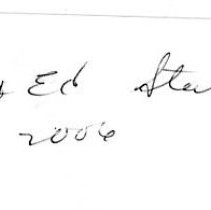 Ed Ste
2006